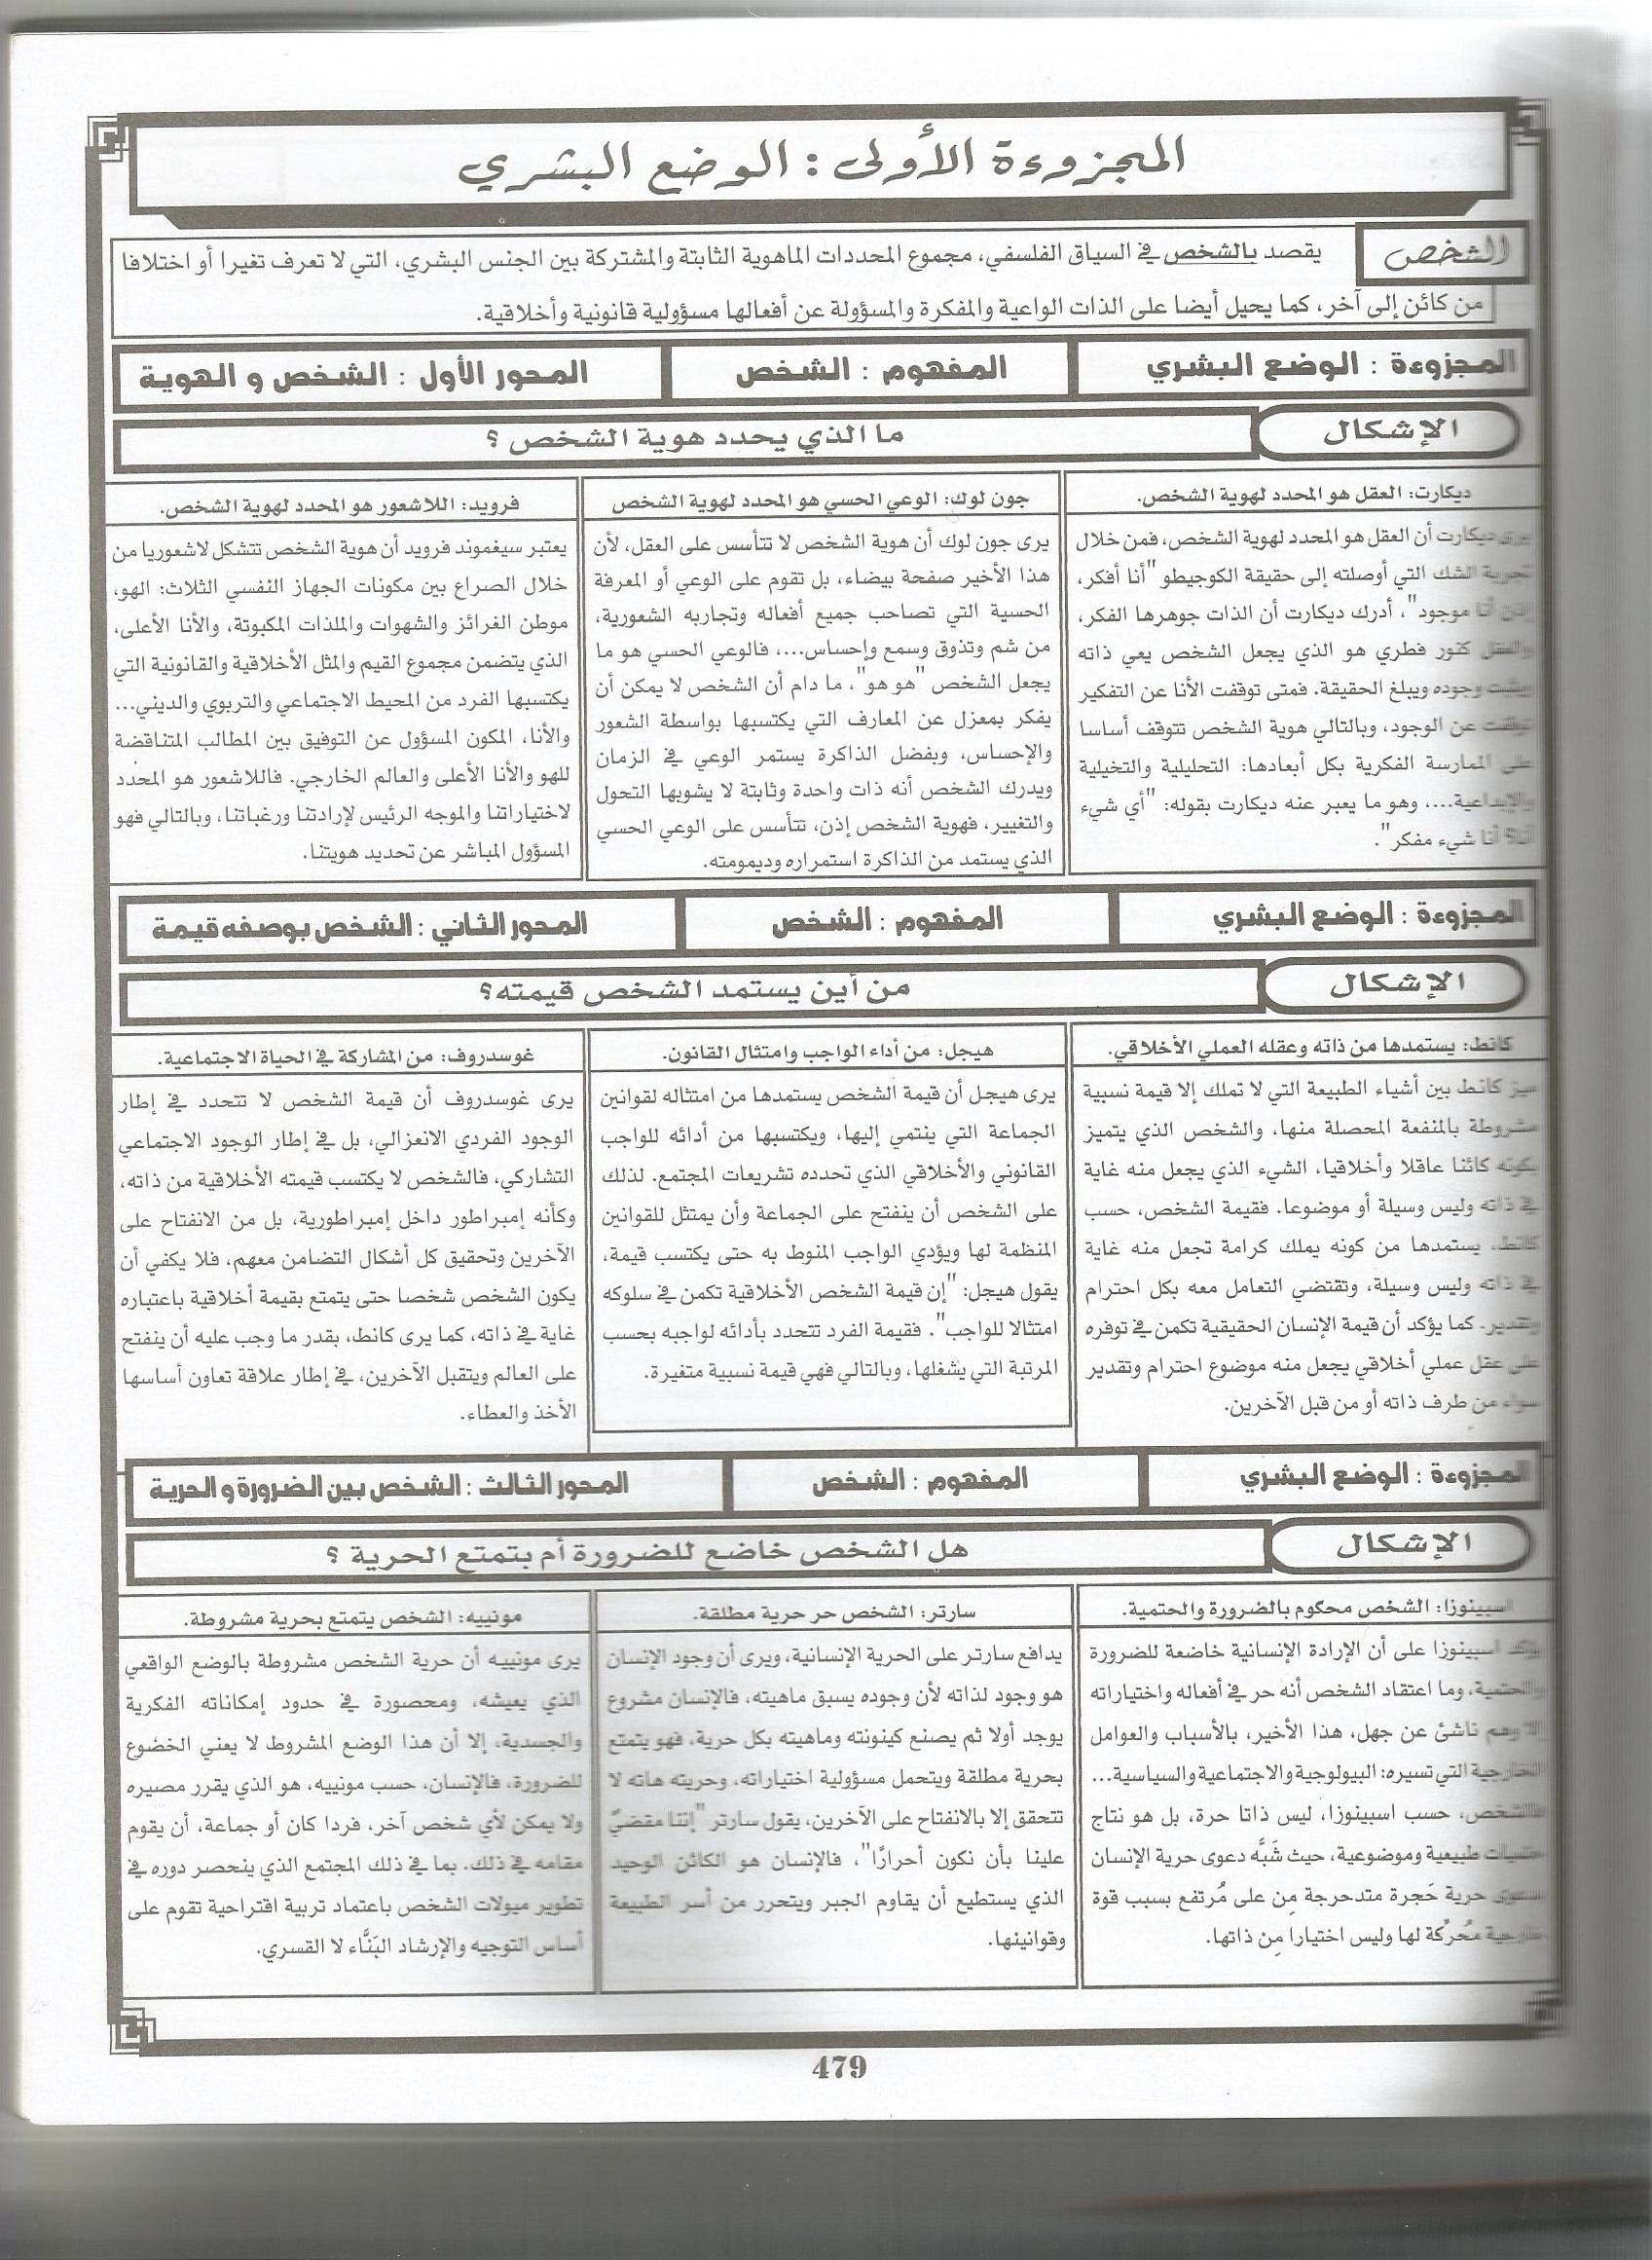 المجزوءة الأولى : الوضع البشري
الشخص
يقصد بالشخص في السياق الفلسفي، مجموع المحددات الماهوية الثابتة والمشتركة بين الجنس البشري، التي لا تعرف تغيرا أو اختلافا
من كائن إلى آخر، كما يحيل أيضا على الذات الواعية والمفكرة والمسؤولة عن أفعالها مسؤولية قانونية وأخلاقية.
المجزوءة : الوضع البشري
المفهوم : الشخص
المحور الأول : الشخص و الهوية
الإشكال
ما الذي يحدد هوية الشخص ؟
ديكارت: العقل هو المحدد لهوية الشخص.
يرى ديكارت أن العقل هو المحدد لهوية الشخص، فمن خلال
تجربة الشك التي أوصلته إلى حقيقة الكوجيطو "أنا أفكر،
إذن أنا موجود"، أدرك ديكارت أن الذات جوهرها الفكر،
والعقل كنور فطري هو الذي يجعل الشخص يعي ذاته
ويثبت وجوده ويبلغ الحقيقة. فمتى توقفت الأنا عن التفكير
توقفت عن الوجود، وبالتالي هوية الشخص تتوقف أساسا
على الممارسة الفكرية بكل أبعادها: التحليلية والتخيلية
والإبداعية...، وهو ما يعبر عنه ديكارت بقوله: "أي شيء
أنا؟ أنا شيء مفكر".
جون لوك: الوعي الحسي هو المحدد لهوية الشخص
يرى جون لوك أن هوية الشخص لا تتأسس على العقل، لأن
هذا الأخير صفحة بيضاء، بل تقوم على الوعي أو المعرفة
الحسية التي تصاحب جميع أفعاله وتجاربه الشعورية،
من شم وتذوق وسمع وإحساس...، فالوعي الحسي هو ما
يجعل الشخص "هو هو"، ما دام أن الشخص لا يمكن أن
يفكر بمعزل عن المعارف التي يكتسبها بواسطة الشعور
والإحساس، وبفضل الذاكرة يستمر الوعي في الزمان
ويدرك الشخص أنه ذات واحدة وثابتة لا يشوبها التحول
والتغيير، فهوية الشخص إذن، تتأسس على الوعي الحسي
الذي يستمد من الذاكرة استمراره وديمومته.
فرويد: اللاشعور هو المحدد لهوية الشخص.
يعتبر سيغموند فرويد أن هوية الشخص تتشكل لاشعوريا من
خلال الصراع بين مكونات الجهاز النفسي الثلاث: الهو،
موطن الغرائز والشهوات والملذات المكبوتة، والأنا الأعلى،
الذي يتضمن مجموع القيم والمثل الأخلاقية والقانونية التي
يكتسبها الفرد من المحيط الاجتماعي والتربوي والديني...
والأنا، المكون المسؤول عن التوفيق بين المطالب المتناقضة
للهو والأنا الأعلى والعالم الخارجي. فاللاشعور هو المحدد
لاختياراتنا والموجه الرئيس لإرادتنا ورغباتنا، وبالتالي فهو
المسؤول المباشر عن تحديد هويتنا.
المجزوءة : الوضع البشري
المفهوم : الشخص
المحور الثاني : الشخص بوصفه قيمة
الإشكال
من أين يستمد الشخص قيمته؟
كانط: يستمدها من ذاته وعقله العملي الأخلاقي.
ميز كانط بين أشياء الطبيعة التي لا تملك إلا قيمة نسبية
مشروطة بالمنفعة المحصلة منها، والشخص الذي يتميز
بكونه كائنا عاقلا وأخلاقيا، الشيء الذي يجعل منه غاية
في ذاته وليس وسيلة أو موضوعا. فقيمة الشخص، حسب
كانط، يستمدها من كونه يملك كرامة تجعل منه غاية
في ذاته وليس وسيلة، وتقتضي التعامل معه بكل احترام
وتقدير. كما يؤكد أن قيمة الإنسان الحقيقية تكمن في توفره
على عقل عملي أخلاقي يجعل منه موضوع احترام وتقدير
سواء من طرف ذاته أو من قبل الآخرين.
هيجل: من أداء الواجب وامتثال القانون.
يرى هيجل أن قيمة الشخص يستمدها من امتثاله لقوانين
الجماعة التي ينتمي إليها، ويكتسبها من أدائه للواجب
القانوني والأخلاقي الذي تحدده تشريعات المجتمع. لذلك
على الشخص أن ينفتح على الجماعة وأن يمتثل للقوانين
المنظمة لها ويؤدي الواجب المنوط به حتى يكتسب قيمة،
يقول هيجل: "إن قيمة الشخص الأخلاقية تكمن في سلوكه
امتثالا للواجب". فقيمة الفرد تتحدد بأدائه لواجبه بحسب
المرتبة التي يشغلها، وبالتالي فهي قيمة نسبية متغيرة.
غوسدروف: من المشاركة في الحياة الاجتماعية.
يرى غوسدروف أن قيمة الشخص لا تتحدد في إطار
الوجود الفردي الانعزالي، بل في إطار الوجود الاجتماعي
التشاركي، فالشخص لا يكتسب قيمته الأخلاقية من ذاته،
وكأنه إمبراطور داخل إمبراطورية، بل من الانفتاح على
الآخرين وتحقيق كل أشكال التضامن معهم، فلا يكفي أن
يكون الشخص شخصا حتى يتمتع بقيمة أخلاقية باعتباره
غاية في ذاته، كما يرى كانط، بقدر ما وجب عليه أن ينفتح
على العالم ويتقبل الآخرين، في إطار علاقة تعاون أساسها
الأخذ والعطاء.
المجزوءة : الوضع البشري
المفهوم : الشخص
المحور الثالث : الشخص بين الضرورة و الحرية
الإشكال
هل الشخص خاضع للضرورة أم بتمتع الحرية ؟
اسبينوزا: الشخص محكوم بالضرورة والحتمية.
يؤكد اسبينوزا على أن الإرادة الإنسانية خاضعة للضرورة
والحتمية، وما اعتقاد الشخص أنه حر في أفعاله واختياراته
إلا وهم ناشئ عن جهل، هذا الأخير، بالأسباب والعوامل
الخارجية التي تسيره: البيولوجية والاجتماعية والسياسية...
فالشخص، حسب اسبينوزا، ليس ذاتا حرة، بل هو نتاج
حتميات طبيعية وموضوعية، حيث شَبَّه دعوى حرية الإنسان
بدعوى حرية حَجرة متدحرجة مِن على مُرتفع بسبب قوة
خارجية مُحُرِّكة لها وليس اختيارا مِن ذاتها.
سارتر: الشخص حر حرية مطلقة.
يدافع سارتر على الحرية الإنسانية، ويرى أن وجود الإنسان
هو وجود لذاته لأن وجوده يسبق ماهيته، فالإنسان مشروع
يوجد أولا ثم يصنع كينونته وماهيته بكل حرية، فهو يتمتع
بحرية مطلقة ويتحمل مسؤولية اختياراته، وحريته هاته لا
تتحقق إلا بالانفتاح على الآخرين، يقول سارتر "إننا مقضيٌ
علينا بأن نكون أحرارًا"، فالإنسان هو الكائن الوحيد
الذي يستطيع أن يقاوم الجبر ويتحرر من أسر الطبيعة
وقوانينها.
مونييه: الشخص يتمتع بحرية مشروطة.
يرى مونييه أن حرية الشخص مشروطة بالوضع الواقعي
الذي يعيشه، ومحصورة في حدود إمكاناته الفكرية
والجسدية، إلا أن هذا الوضع المشروط لا يعني الخضوع
للضرورة، فالإنسان، حسب مونييه، هو الذي يقرر مصيره
ولا يمكن لأي شخص آخر، فردا كان أو جماعة، أن يقوم
مقامه في ذلك. بما في ذلك المجتمع الذي ينحصر دوره في
تطوير ميولات الشخص باعتماد تربية اقتراحية تقوم على
أساس التوجيه والإرشاد البَنَّاء لا القسري.
479